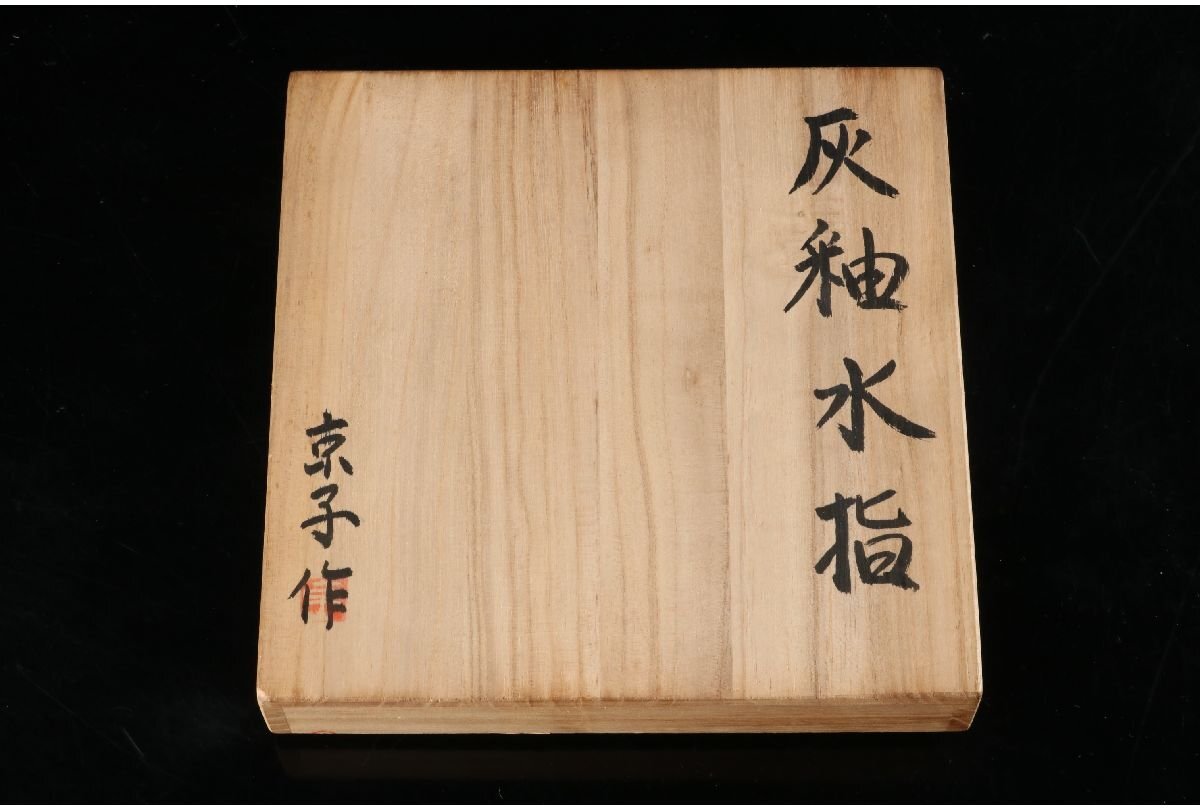 灰釉水指
京子作